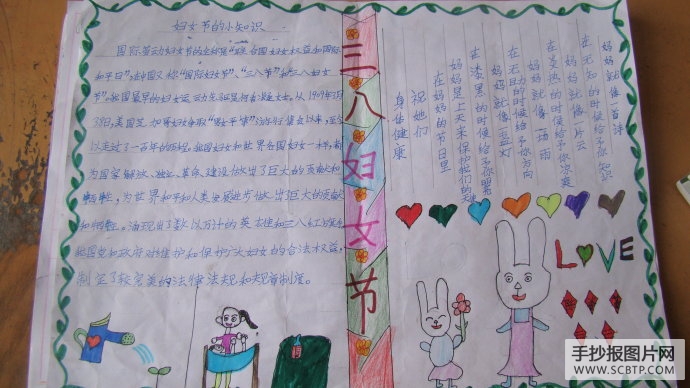 妇女节的小知识
国际劳动妇女节的全称是“联合国妇女权益和国际
和平日”在中国又称“国际妇女节”、“三八节”和三八妇女
节”。我国最早的妇女运动先驱是何香凝女士。从1909年3月
8日,美国芝加哥妇女争取“男女平等”的游行集会以来,至今
以走过了一百年的历程。我国妇女和世界各国妇女一样,都
为国家解放、独立、革命、建设做出了巨大的贡献和
牺牲。为世界和平和人类发展进步做出了巨大的贡献
和牺牲。涌现出了数以万计的英雄和三八红旗手
我国党和政府对维护和保护广大妇女的合法权益,
制定了较完美的法律法规和规章制度。
三八妇女节
妈妈就像一首诗
在无知的时候给予你知识
妈妈就像一片云
在炎热的时候给予你凉爽
妈妈就像一场雨
在无助的时候给予你方向
妈妈就像一盏灯
在漆黑的时候给予你照明
妈妈是上天来保护我们的天使
在妈妈的节日里
祝她们
身体健康
LOVE
手抄报图片网
WWW.SCBTP.COM